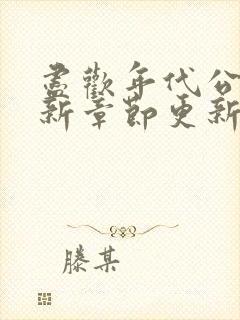 盡歡年代公
新章節更新
滕某